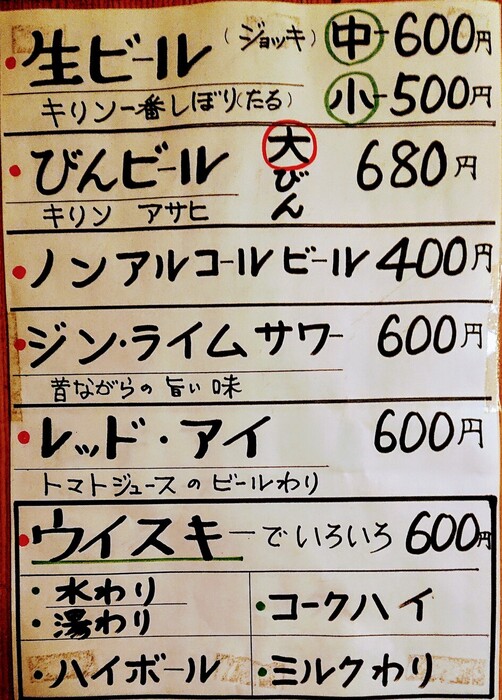 生ビール (ジョッキ) 中-600円
キリン一番しぼり(たる) 小-500円
びんビール 大びん 680円
キリン アサヒ
ノンアルコールビール 400円
ジン・ライムサワー 600円
昔ながらの旨い味
レッド・アイ 600円
トマトジュースのビールわり
ウイスキーでいろいろ 600円
・水わり
・湯わり
・コークハイ
・ハイボール
・ミルクわり